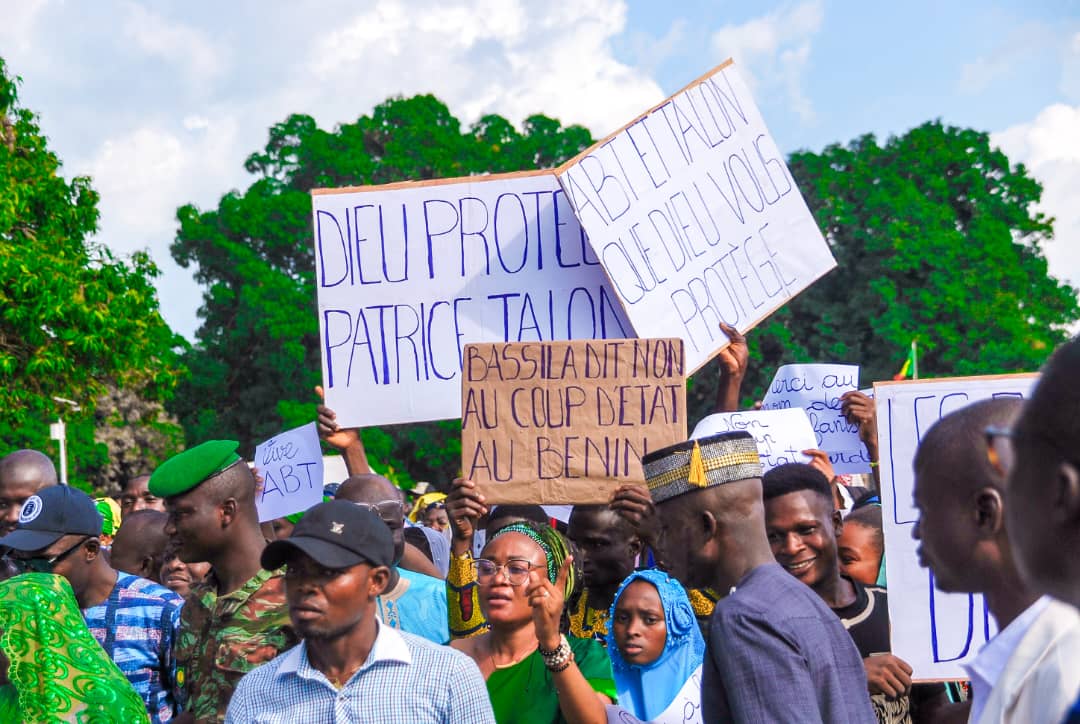 DIEU PROTE
PATRICE TALON
ABT ET TALON
QUE DIEU VOUS
PROTÈGE
BASSILA DIT NON
AU COUP D'ETAT
AU BENIN
vive
ABT
Merci au
Non
LES